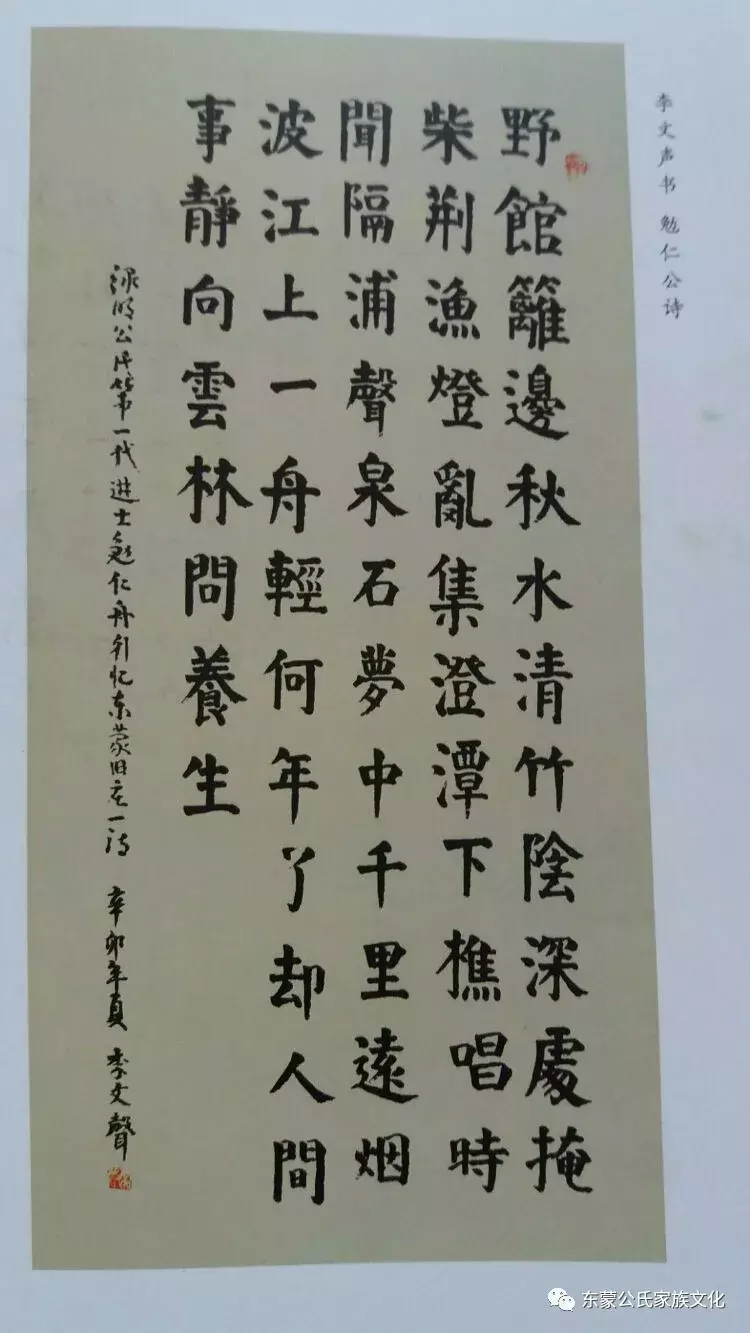 李文声书 勉仁公诗
野館籬邊秋水清竹陰深處掩
柴荆漁燈亂集澄潭下樵唱時
聞隔浦聲泉石夢中千里遠烟
波江上一舟輕何年了却人間
事靜向雲林問養生
公氏第一代進士勉仁舟行忆东蒙旧庄一诗 辛卯年夏 李文聲
东蒙公氏家族文化